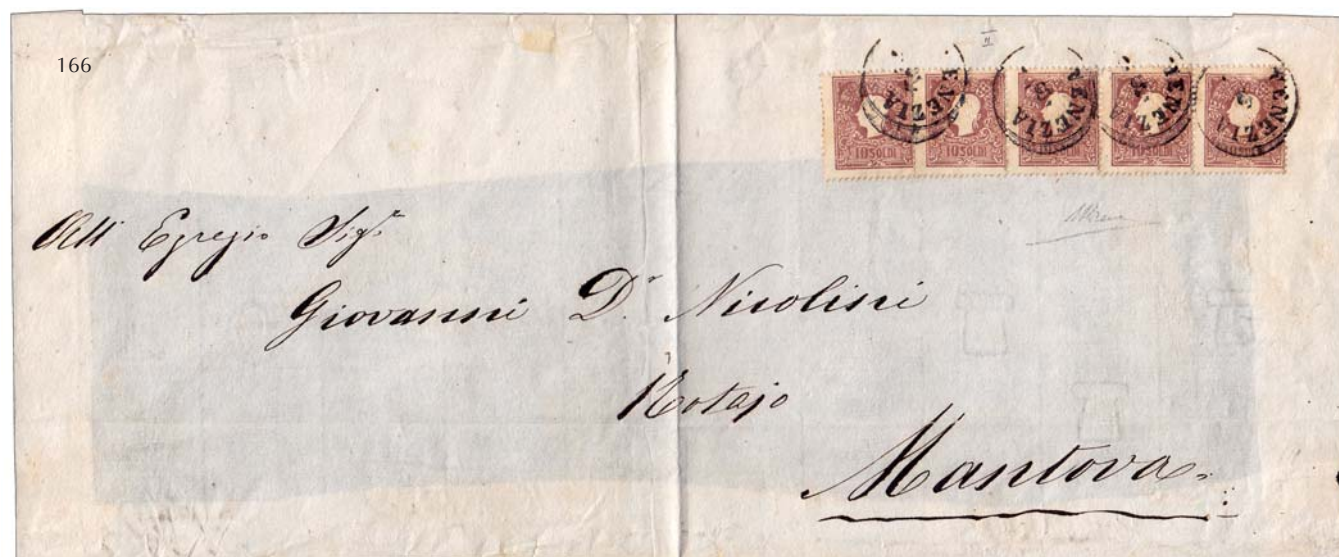 166
II
VENEZIA VENEZIA VENEZIA VENEZIA VENEZIA
10 SOLDI 10 SOLDI 10 SOLDI 10 SOLDI 10 SOLDI
All' Egregio Sigr
Giovanni Dr Nicolini
Notajo
Mantova